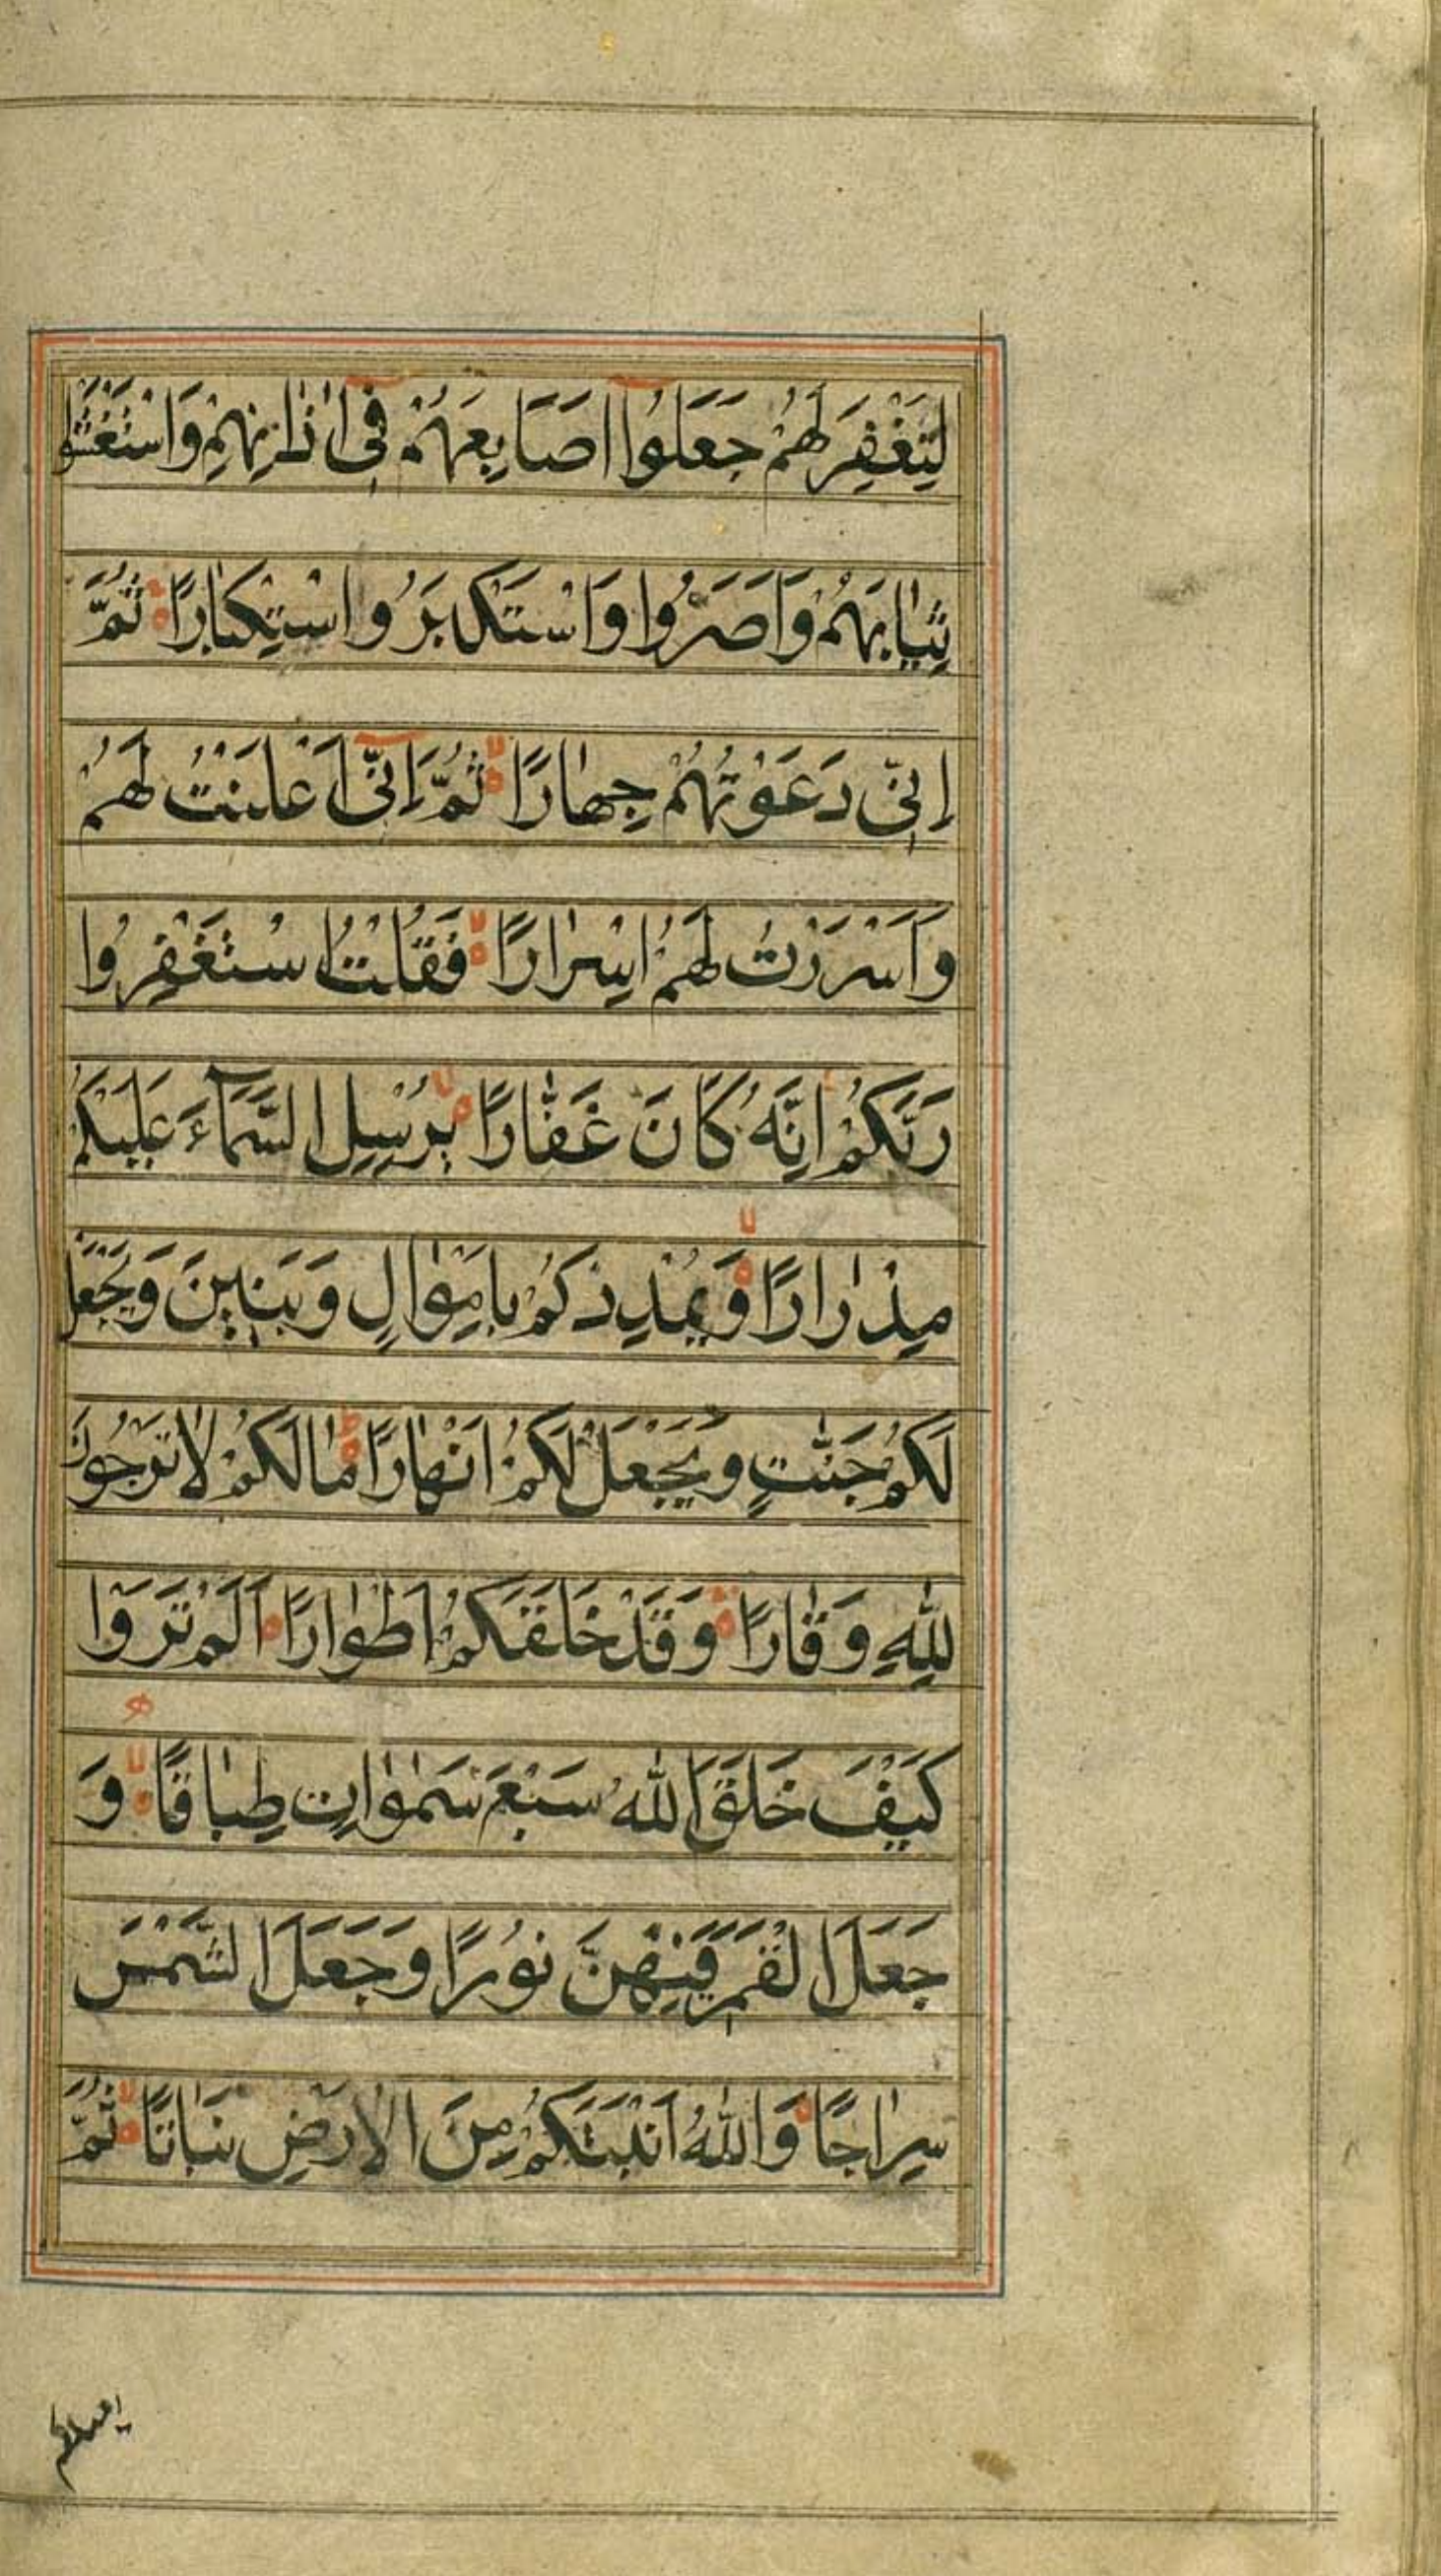 لِتَغْفِرَ لَهُمْ جَعَلُوا اَصَابِعَهُمْ فِی اٰذَانِهِمْ وَاسْتَغْشَوْا
ثِیَابَهُمْ وَاَصَرُّوا وَاسْتَکْبَرُوا اسْتِکْبَارًا ثُمَّ
اِنِّی دَعَوْتُهُمْ جِهَارًا ثُمَّ اِنِّی اَعْلَنْتُ لَهُمْ
وَاَسْرَرْتُ لَهُمْ اِسْرَارًا فَقُلْتُ اسْتَغْفِرُوا
رَبَّکُمْ اِنَّهُ کَانَ غَفَّارًا یُرْسِلِ السَّمَآءَ عَلَیْکُمْ
مِدْرَارًا وَیُمْدِدْکُمْ بِاَمْوَالٍ وَبَنِینَ وَیَجْعَلْ
لَکُمْ جَنّٰتٍ وَیَجْعَلْ لَکُمْ اَنْهَارًا مَا لَکُمْ لَا تَرْجُونَ
لِلّٰهِ وَقَارًا وَقَدْ خَلَقَکُمْ اَطْوَارًا اَلَمْ تَرَوْا
کَیْفَ خَلَقَ اللّٰهُ سَبْعَ سَمٰوَاتٍ طِبَاقًا وَ
جَعَلَ الْقَمَرَ فِیهِنَّ نُورًا وَجَعَلَ الشَّمْسَ
سِرَاجًا وَاللّٰهُ اَنْبَتَکُمْ مِنَ الْاَرْضِ نَبَاتًا ثُمَّ
یعیدکم